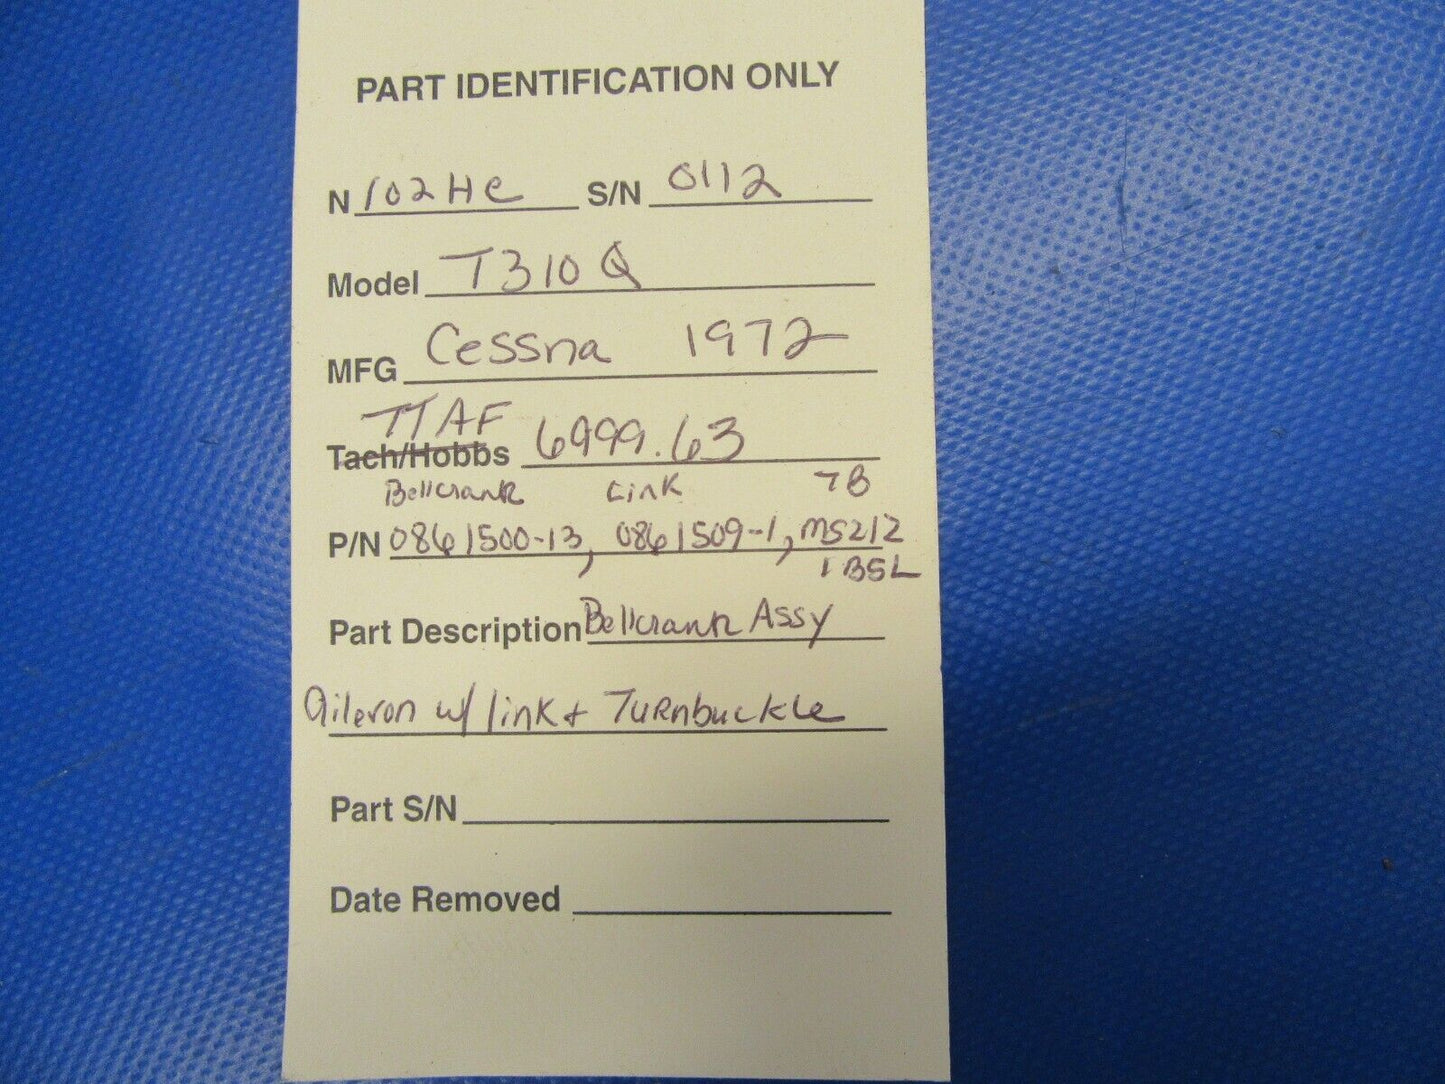 PART IDENTIFICATION ONLY
N 102HC S/N 0112
Model T310Q
MFG Cessna 1972
TTAF
Tach/Hobbs 6999.63
Bellcrank Link TB
P/N 0861500-13, 0861509-1, MS212
1BSL
Part Description Bellcrank Assy
Aileron w/ link + Turnbuckle
Part S/N
Date Removed